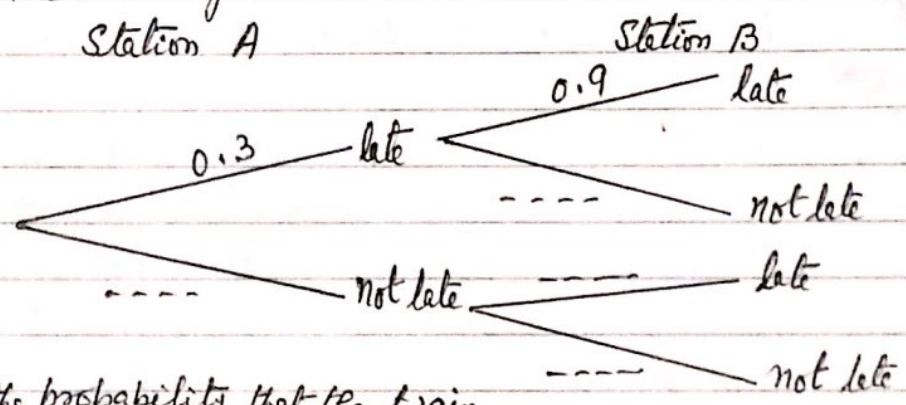 Station A Station B
0.9 late
0.3 late
---- not late
---- not late ---- late
---- not late
the probability that the train